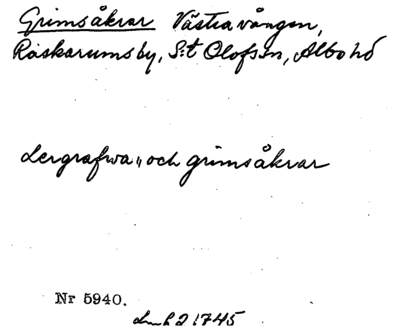 Grimsåkrar Västravången,
Raskarums by, S:t Olofs sn, Albo hd
Lergrafwa „ och grimsåkrar
Nr 5940.
1745